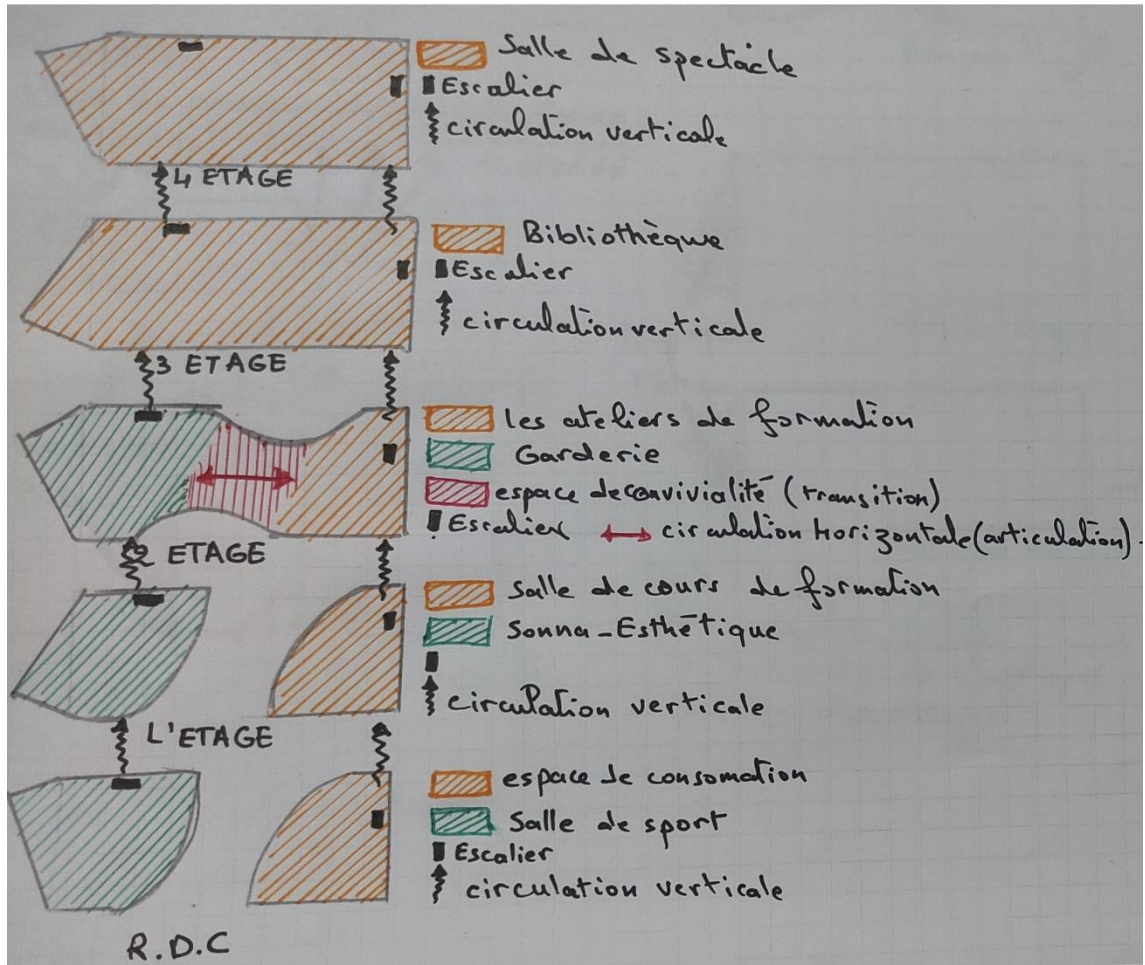 Salle de spectacle
Escalier
circulation verticale
4 ETAGE
Bibliothèque
Escalier
circulation verticale
3 ETAGE
les ateliers de formation
Garderie
espace de convivialité (transition)
Escalier circulation Horizontale (articulation).
2 ETAGE
Salle de cours de formation
Sonna-Esthétique
circulation verticale
L'ETAGE
espace de consomation
Salle de sport
Escalier
circulation verticale
R.D.C